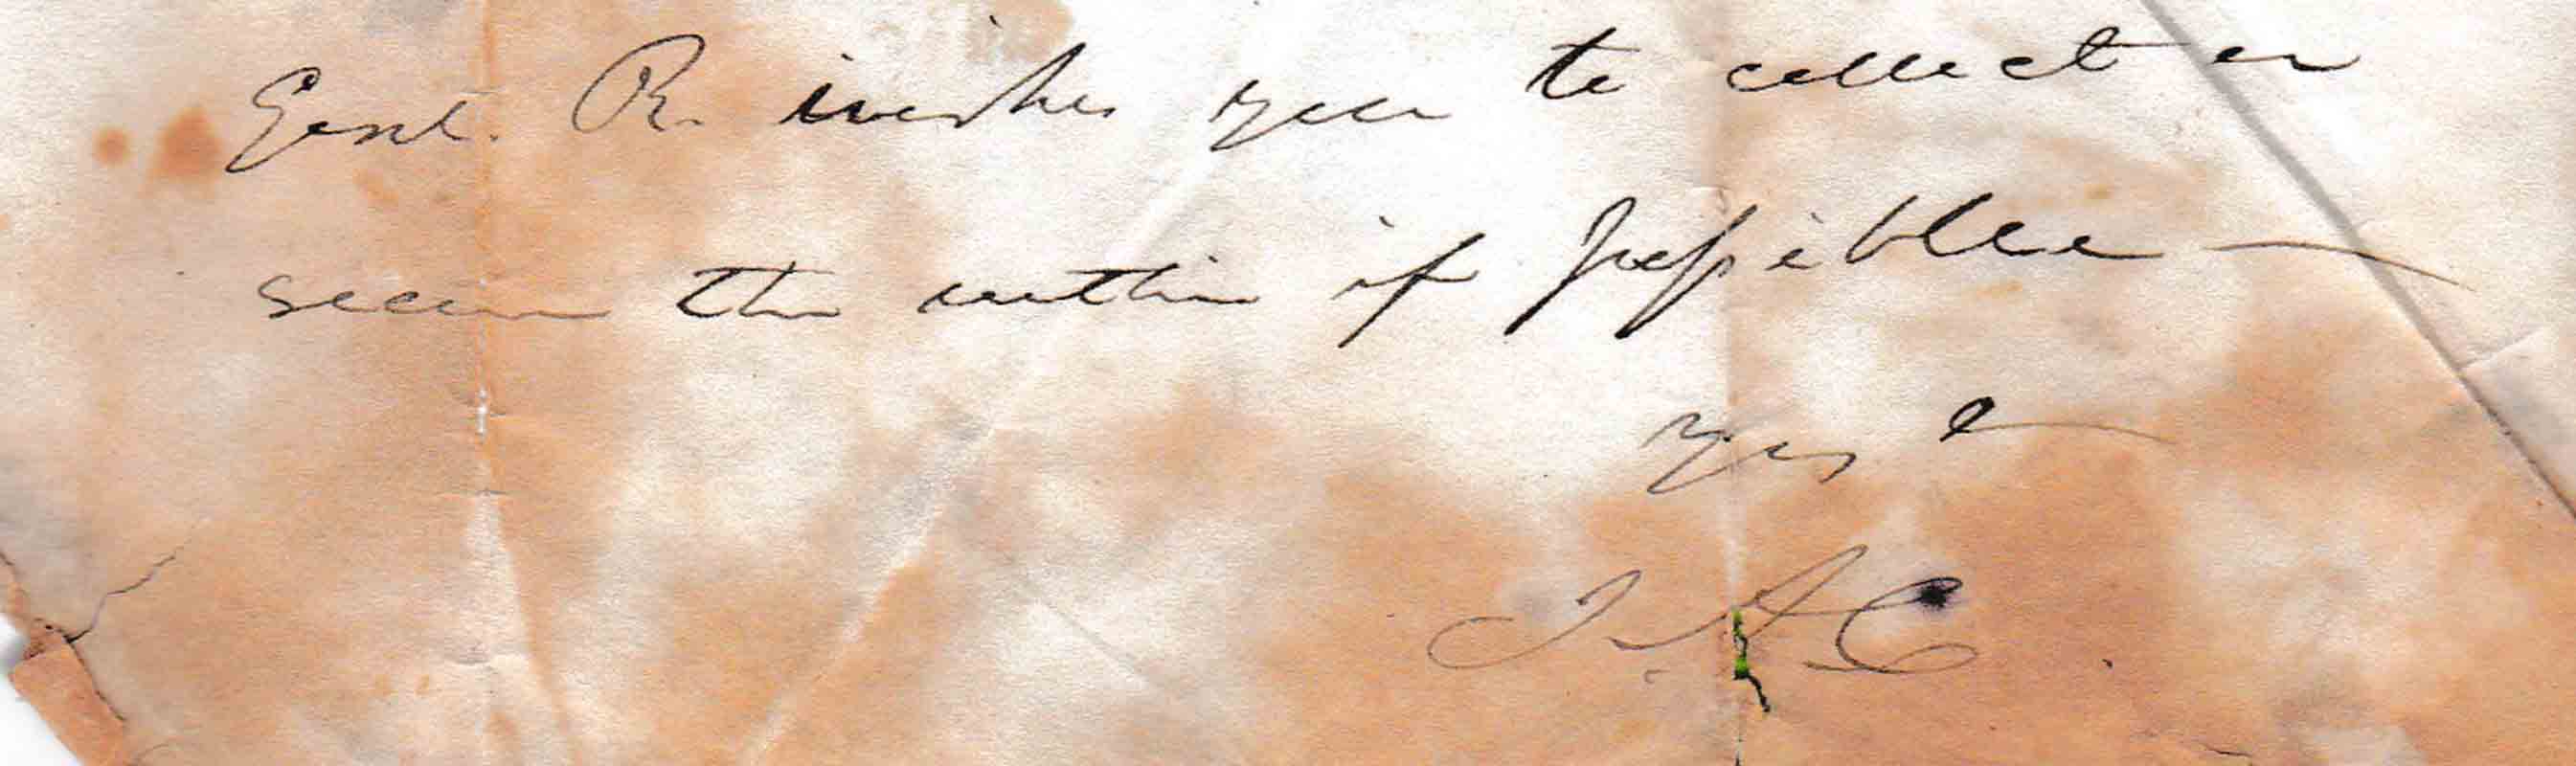 Genl. R. wishes you to collect or
secure the within if possible —
yrs &
J. A C